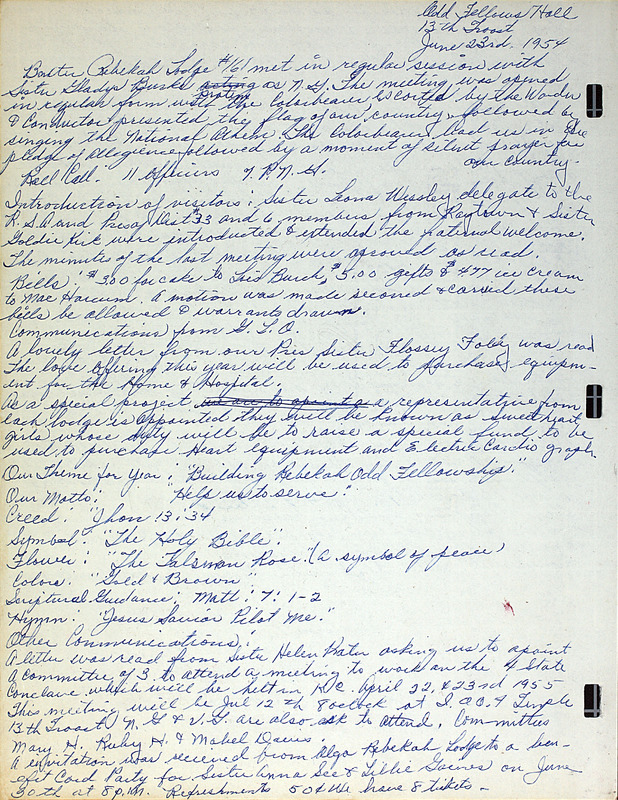 Odd Fellows Hall
13th Troost
June 23rd. 1954
Baxter Rebekah Lodge #161 met in regular session with
Sister Gladys Burks acting as N.G. The meeting was opened
in regular form with The Colorbearer escorted by the Warden
& Conductor presented the flag of our country followed by
singing the National Athem. The Colorbearer lead us in the
pledge of Allegience followed by a moment of silent prayer for
our Country.
Roll Call. 11 officers 7 P.N.G.
Introduction of visitors: Sister Leona Wessley delegate to the
R.S.A and Pres of Dist #33 and 6 members from Raytown & Sister
Goldie Kirk were introduced & extended the faternal welcome.
The minutes of the last meeting were aproved as read.
Bills: $3.00 for cake to Lois Burch, $5.00 gifts & $4.77 ice cream
to Mae Harcum. A motion was made second & carried these
bills be allowed & warrants drawn.
Communications from G.L.O.
A lovely letter from our Pres Sister Flossey Foley was read
The love offering this year will be used to purchase equipm-
ent for the Home & Hospital.
As a special project we are to apoint as a representative from
each lodge is appointed they will be known as sweetheart
girls whose duty will be to raise a special fund to be
used to purchase Heart equipment and Electric Cardio graph.
Our Theme for Year: "Building Rebekah Odd Fellowship."
Our Motto: Help us to serve."
Creed: "Jhon 13:34
Symbol: "The Holy Bible".
Flower: "The Talsman Rose." (a symbol of peace)
Colors: "Gold & Brown"
Scriptural Guidance: Matt: 7: 1-2
Hymn: "Jesus Savior Pilot Me."
Other Communications:
A letter was read from Sister Helen Kater asking us to apoint
a committee of 3 to attend a meeting to work on the 4 State
Conclave which will be held in K.C. April 22, & 23rd 1955
This meeting will be Jul 12th 8 oclock at I.O.O.F Temple
13th Troost N.G & V.G. are also ask to attend. Committies
Mary H. Ruby H. & Mabel Davis.
A invitation was received from Alga Rebekah Lodge to a ben-
efit Card Party for Sister Anna See & Lillie Gaines on June
30th at 8 p.m. Refreshments 50¢ We have 8 tickets -